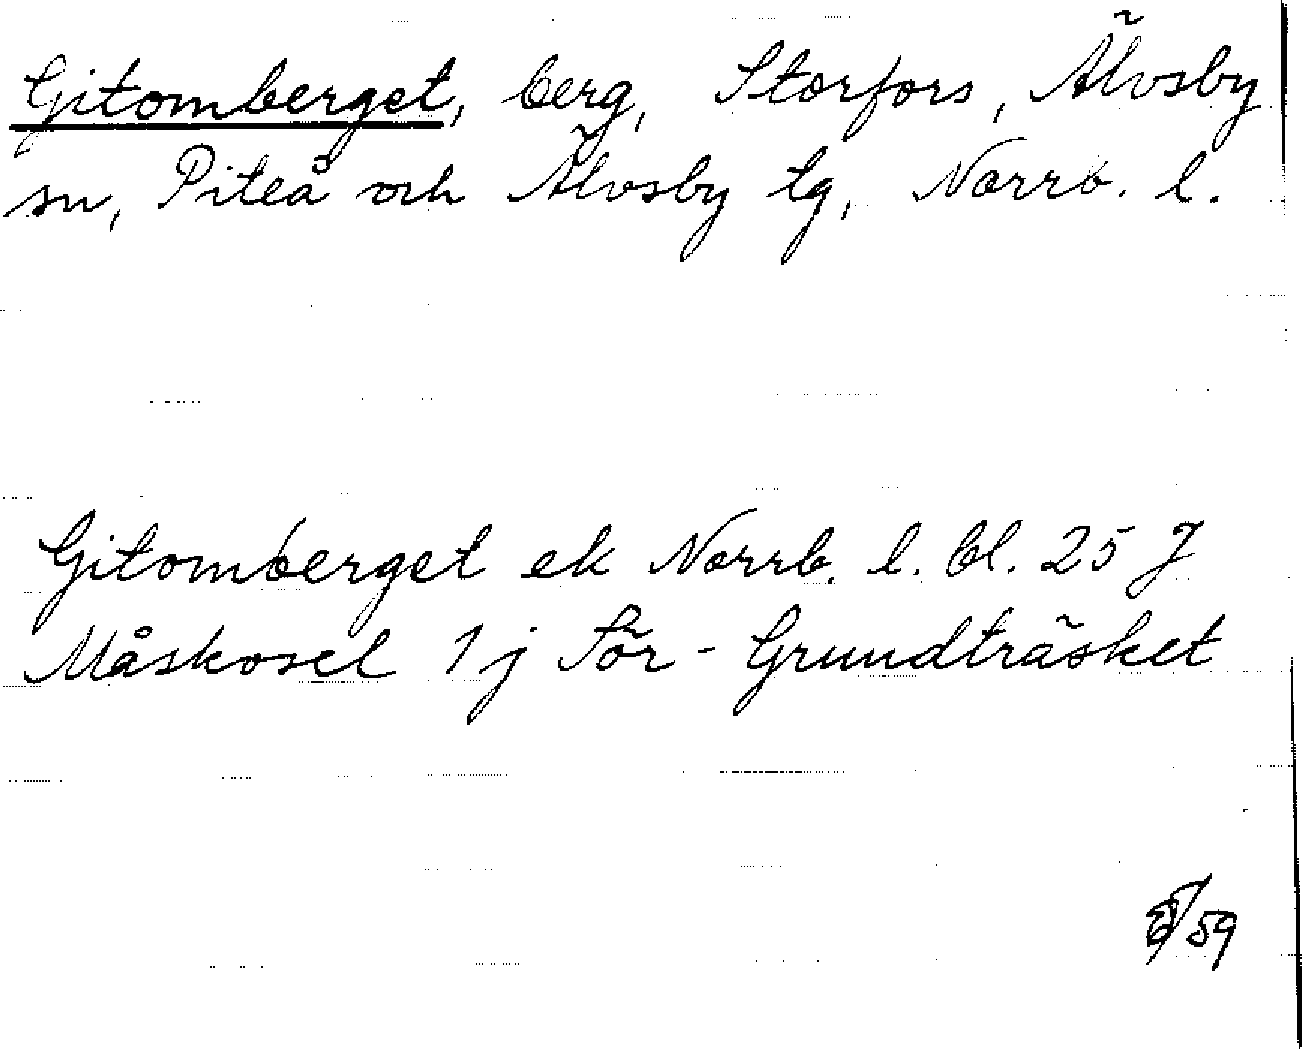 Gitomberget, berg, Storfors, Älvsby
sn, Piteå och Älvsby tg, Norrb. l.
Gitomberget ek Norrb. l. bl. 25 J
Måskosel 1j Sör-Grundträsket
/59